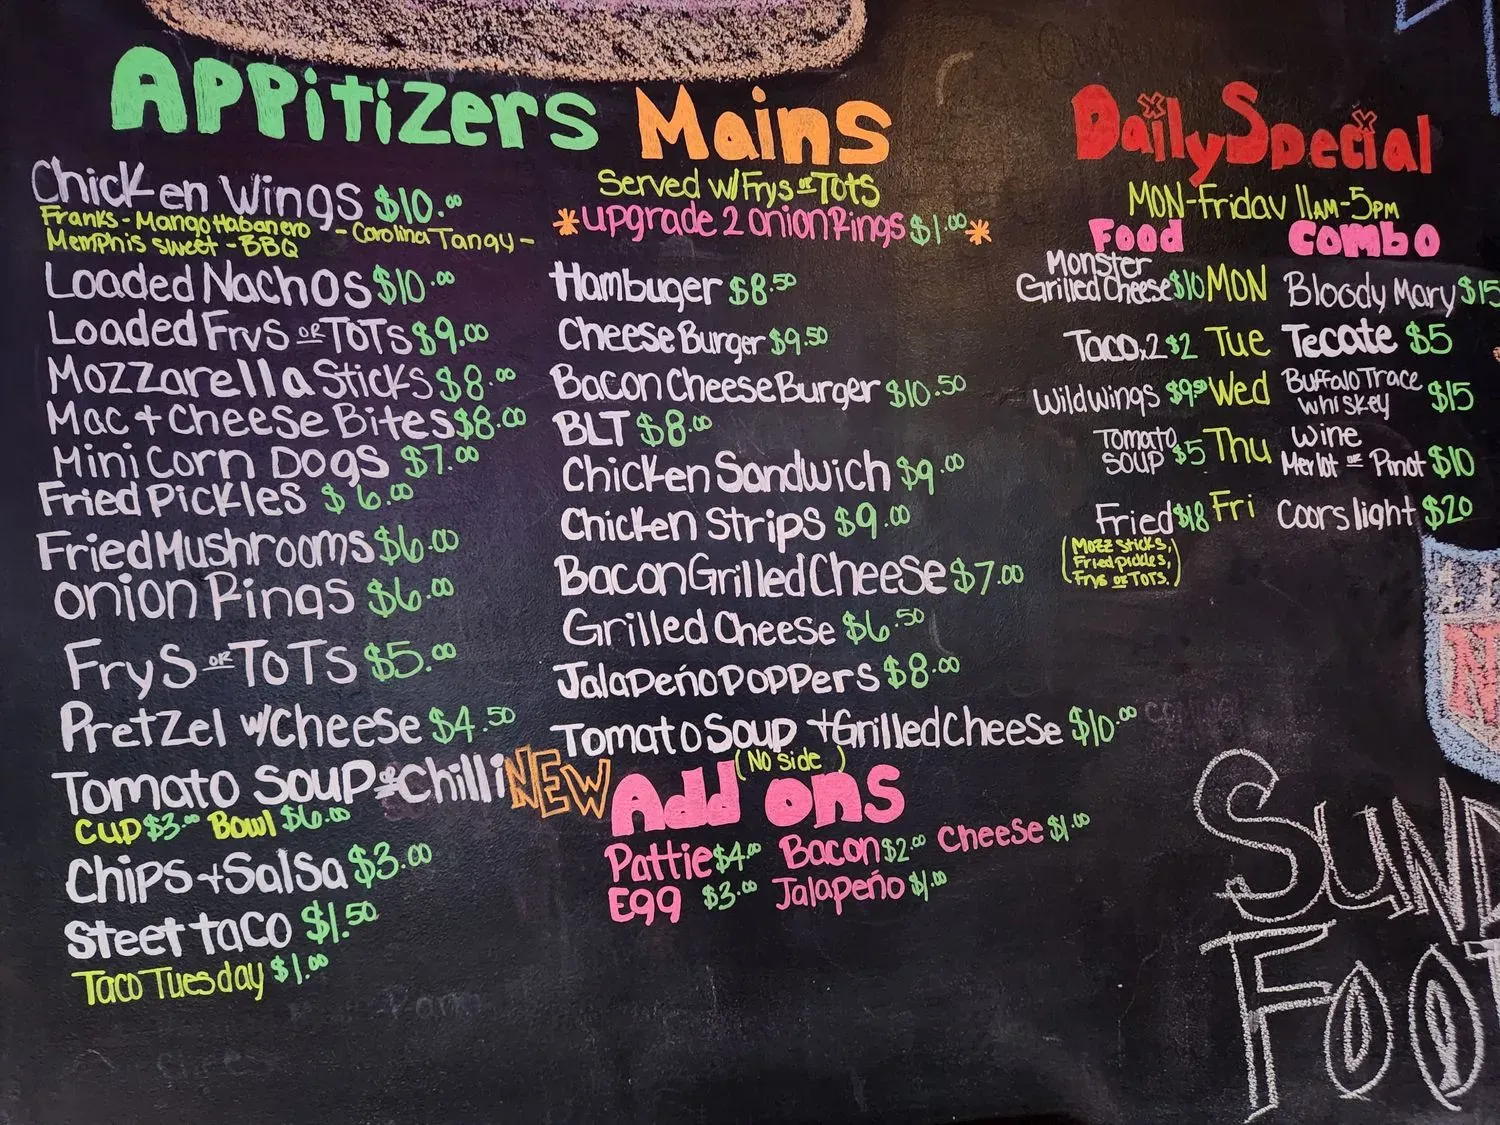 Appitizers
Chicken Wings $10.00
Franks - Mango Habanero - Carolina Tangy -
Memphis Sweet - BBQ
Loaded Nachos $10.00
Loaded Frys or Tots $9.00
Mozzarella Sticks $8.00
Mac + Cheese Bites $8.00
Mini Corn Dogs $7.00
Fried Pickles $6.00
Fried Mushrooms $6.00
Onion Rings $6.00
Frys or Tots $5.00
Pretzel w/Cheese $4.50
Tomato Soup or Chilli NEW
Cup $3.00 Bowl $6.00
Chips + Salsa $3.00
Steet taco $1.50
Taco Tuesday $1.00
Mains
Served w/ Frys or Tots
*upgrade 2 onion Rings $1.00*
Hambuger $8.50
Cheese Burger $9.50
Bacon Cheese Burger $10.50
BLT $8.00
Chicken Sandwich $9.00
Chicken Strips $9.00
Bacon Grilled Cheese $7.00
Grilled Cheese $6.50
Jalapeño Poppers $8.00
Tomato Soup + Grilled Cheese $10.00
(No side)
Add ons
Pattie $4.00 Bacon $2.00 Cheese $1.00
Egg $3.00 Jalapeño $1.00
Daily Special
MON-Friday 11AM-5PM
Food Combo
Monster
Grilled Cheese $10 MON Bloody Mary $15
Taco x2 $2 Tue Tecate $5
Wild Wings $9.50 Wed Buffalo Trace
Whiskey $15
Tomato
Soup $5 Thu Wine
Merlot or Pinot $10
Fried $18 Fri Coors light $20
(Mozz Sticks,
Fried pickles,
Frys or Tots)
SUND
FOO